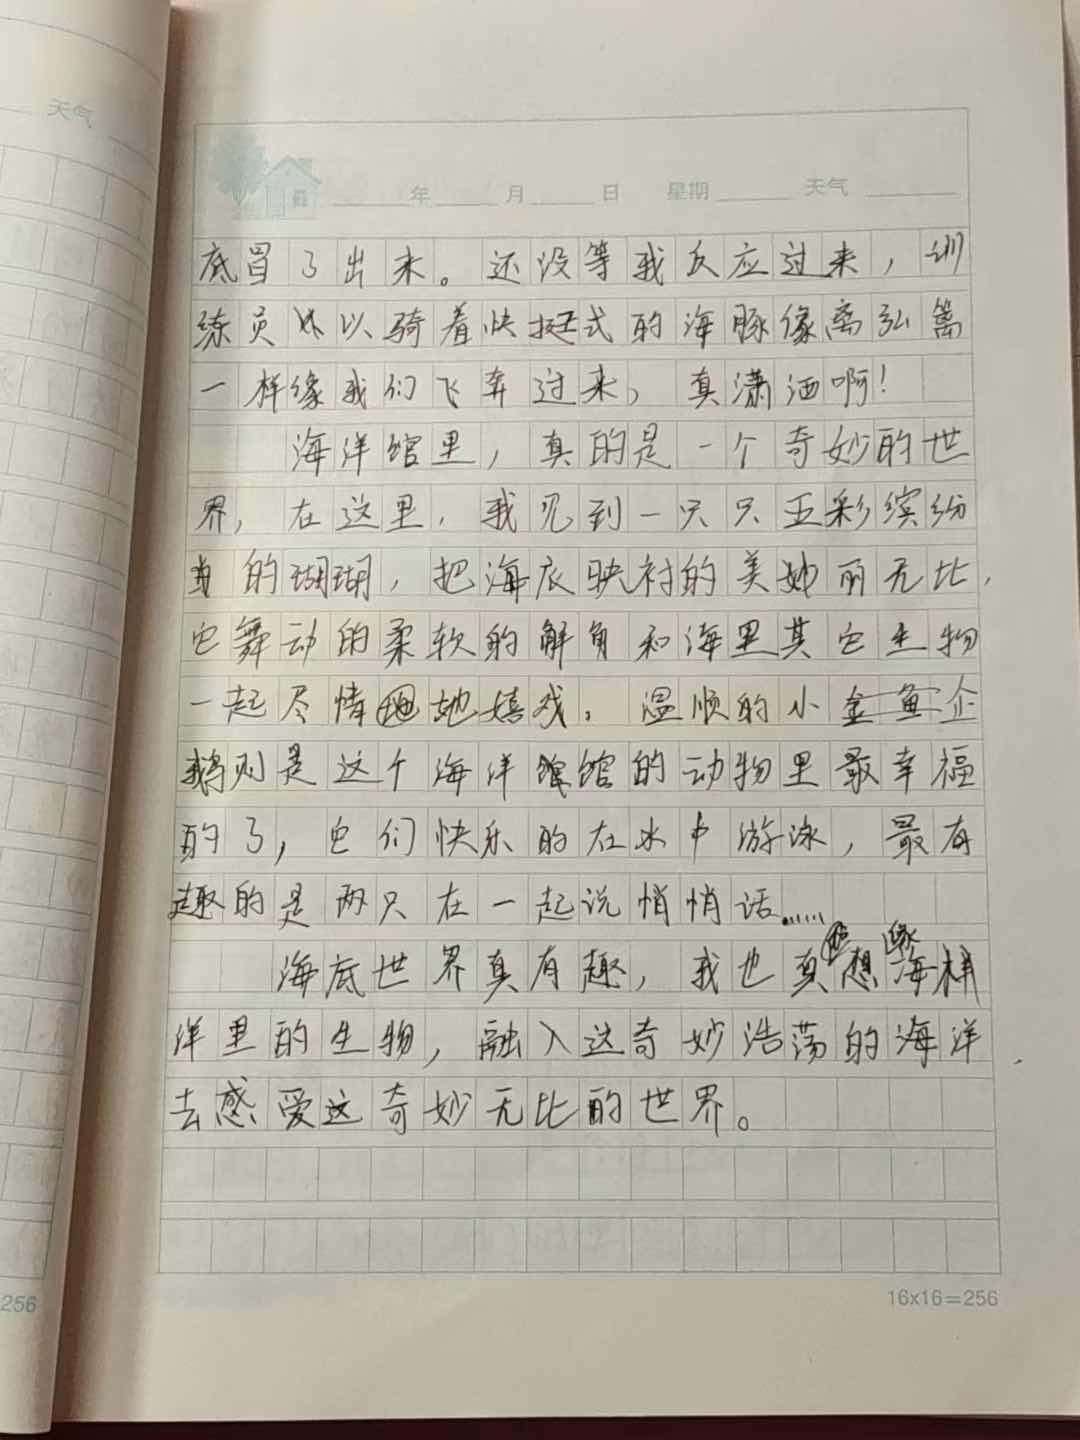 天气
年 月 日 星期 天气
底冒了出来。还没等我反应过来，训
练员以骑着快挺式的海豚像离弘篱
一样缘我们飞奔过来，真潇洒啊！
海洋馆里，真的是一个奇妙的世
界，在这里，我见到一只只五彩缤纷
的瑚瑚，把海底映衬的美妙丽无比，
它舞动的柔软的解角和海里其它生物
一起尽情地嬉戏，温顺的小企
鹅则是这个海洋馆的动物里最幸福
的了，它们快乐的在水中游泳，最有
趣的是两只在一起说悄悄话……
海底世界真有趣，我也真想像海
洋里的生物，融入这奇妙浩荡的海洋，
去感爱这奇妙无比的世界。
256
16x16=256